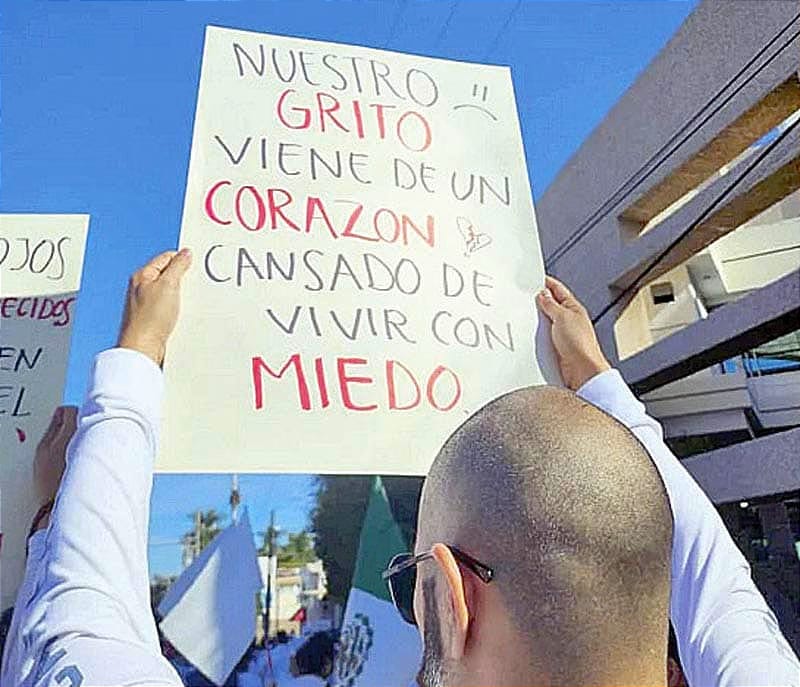 NUESTRO
GRITO
VIENE DE UN
CORAZON
CANSADO DE
VIVIR CON
MIEDO.
OJOS
EN
EL